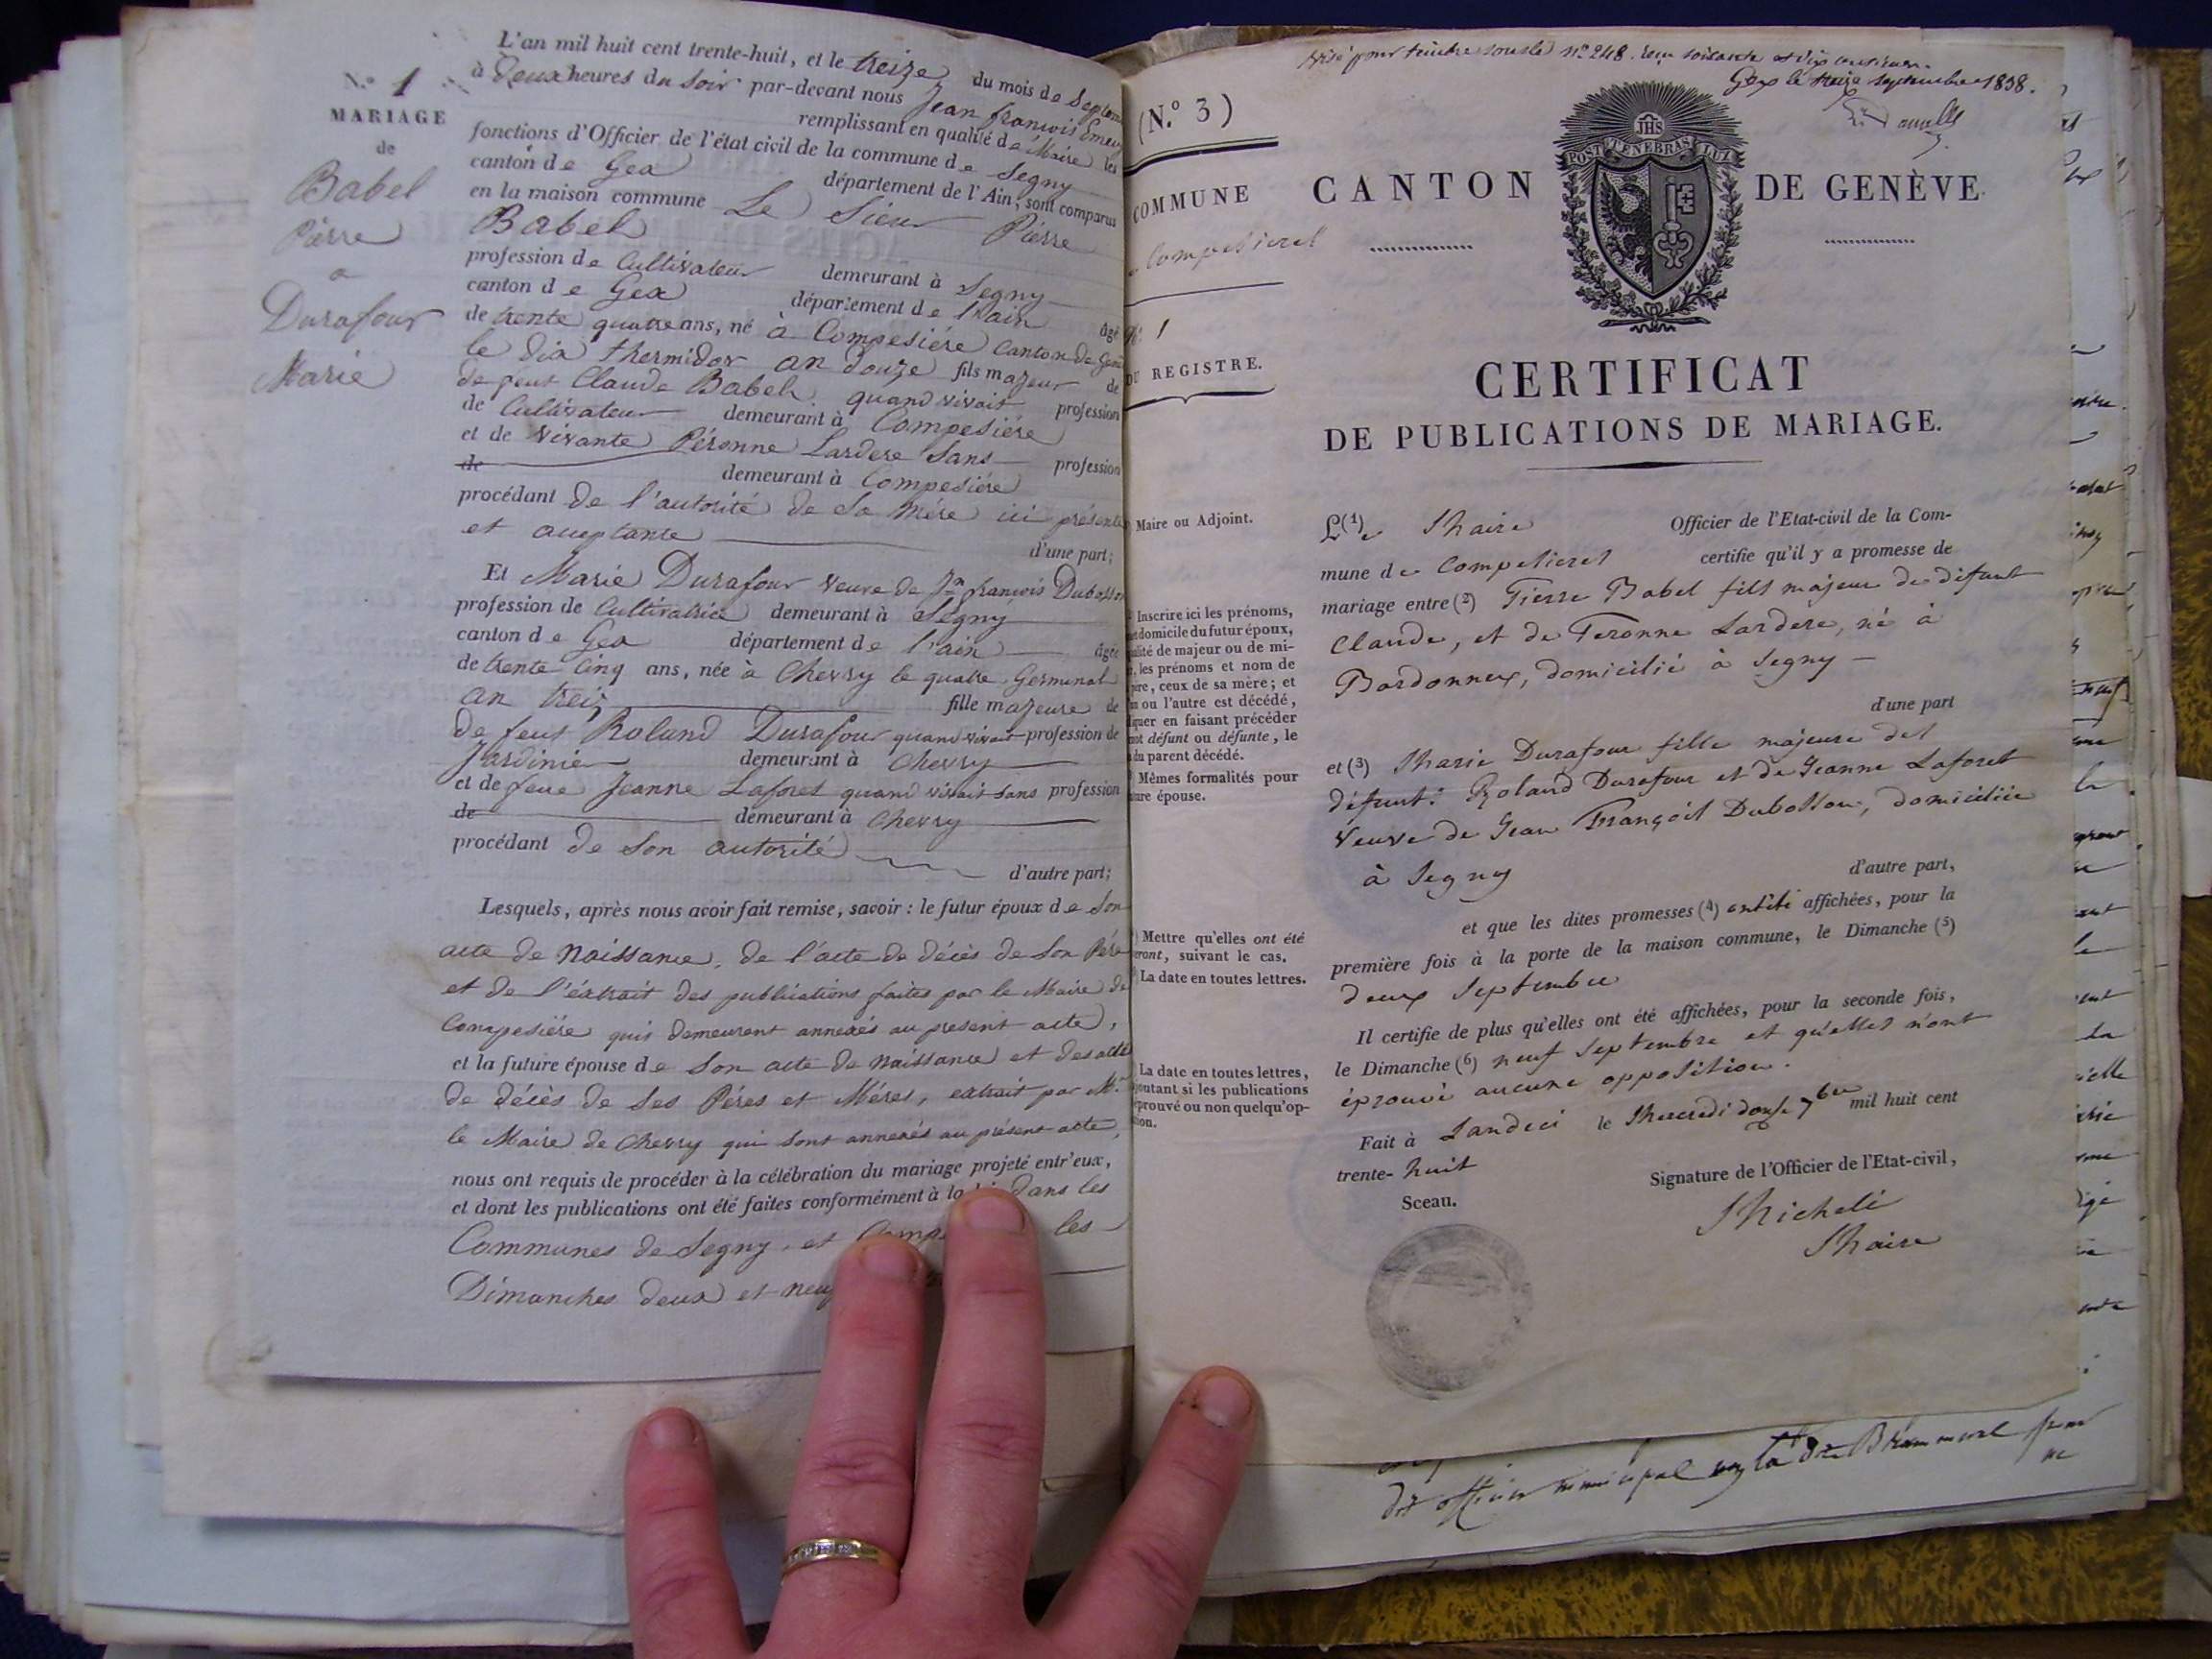 N.o 1
MARIAGE
de
Babel
Pierre
a
Durafour
Marie
L'an mil huit cent trente-huit, et le treize du mois de Septem
à deux heures du soir par-devant nous Jean françois Emery
remplissant en qualité de Maire les
fonctions d'Officier de l'état civil de la commune de Segny
canton de Gex département de l'Ain, sont comparus
en la maison commune Le Sieur Pierre
Babel
profession de Cultivateur demeurant à Segny
canton de Gex département de l'ain âgé
de trente quatre ans, né à Compesiére Canton de
le dix thermidor an douze fils majeur de
de feut Claude Babel quand vivait profession
de Cultivateur demeurant à Compesiére
et de vivante Péronne Lardere Sans profession
de demeurant à Compesiére
procédant de l'autorité de Sa Mére ici présente
et aceptante d'une part;
Et Marie Durafour veuve de Jn françois Dubosson
profession de Cultivatrice demeurant à Segny
canton de Gex département de l'ain âgée
de trente Cinq ans, née à Chevry le quatre Germinal
an treiz fille majeure de
de feut Roland Durafour quand vivait profession de
Jardinier demeurant à Chevry
et de feue Jeanne Laforet quand vivait sans profession
de demeurant à Chevry
procédant de Son autorité
d'autre part;
Lesquels, après nous avoir fait remise, savoir : le futur époux de Son
acte de Naissance, de l'acte de décès de Son Pére
et de l'éxtrait des publications faites par le Maire de
Compesiére quis demeurent annexés au present acte,
et la future épouse de Son acte de Naissance et des acte
de décès de Ses Péres et Méres, extrait par Mr
le Maire de Chevry qui Sont annexés au présent acte,
nous ont requis de procéder à la célébration du mariage projeté entr'eux,
et dont les publications ont été faites conformément à la dans les
Communes de Segny et Comp les
Dimanches deux et neuf
Visé pour timbre sous le No 248. reçu soixante et dix centimes.
Gex le treize septembre 1838.
(N.o 3)
COMMUNE
Compesieres
No 1
DU REGISTRE.
CANTON DE GENÈVE.
JHS
POST TENEBRAS LUX
CERTIFICAT
DE PUBLICATIONS DE MARIAGE.
Maire ou Adjoint.
Inscrire ici les prénoms,
domicile du futur époux,
alité de majeur ou de mi-
, les prénoms et nom de
ère, ceux de sa mère; et
n ou l'autre est décédé,
iquer en faisant précéder
mot défunt ou défunte, le
du parent décédé.
Mêmes formalités pour
ture épouse.
Mettre qu'elles ont été
eront, suivant le cas.
La date en toutes lettres.
La date en toutes lettres,
joutant si les publications
éprouvé ou non quelqu'op-
tion.
L(1)e Maire Officier de l'Etat-civil de la Com-
mune de Compesieres certifie qu'il y a promesse de
mariage entre (2) Pierre Babel fils majeur de défunt
Claude, et de Peronne Lardere, né à
Bardonnex, domicilié à Segny
d'une part
et (3) Marie Durafour fille majeure des
défunts Roland Durafour et de Jeanne Laforet
Veuve de Jean François Dubosson, domiciliée
à Segny d'autre part,
et que les dites promesses (4) ont été affichées, pour la
première fois à la porte de la maison commune, le Dimanche (5)
deux Septembre
Il certifie de plus qu'elles ont été affichées, pour la seconde fois,
le Dimanche (6) neuf Septembre et qu'elles n'ont
éprouvé aucune opposition.
Fait à Landeci le Mercredi douze 7bre mil huit cent
trente-huit
Signature de l'Officier de l'Etat-civil,
Sceau.
Micheli
Maire